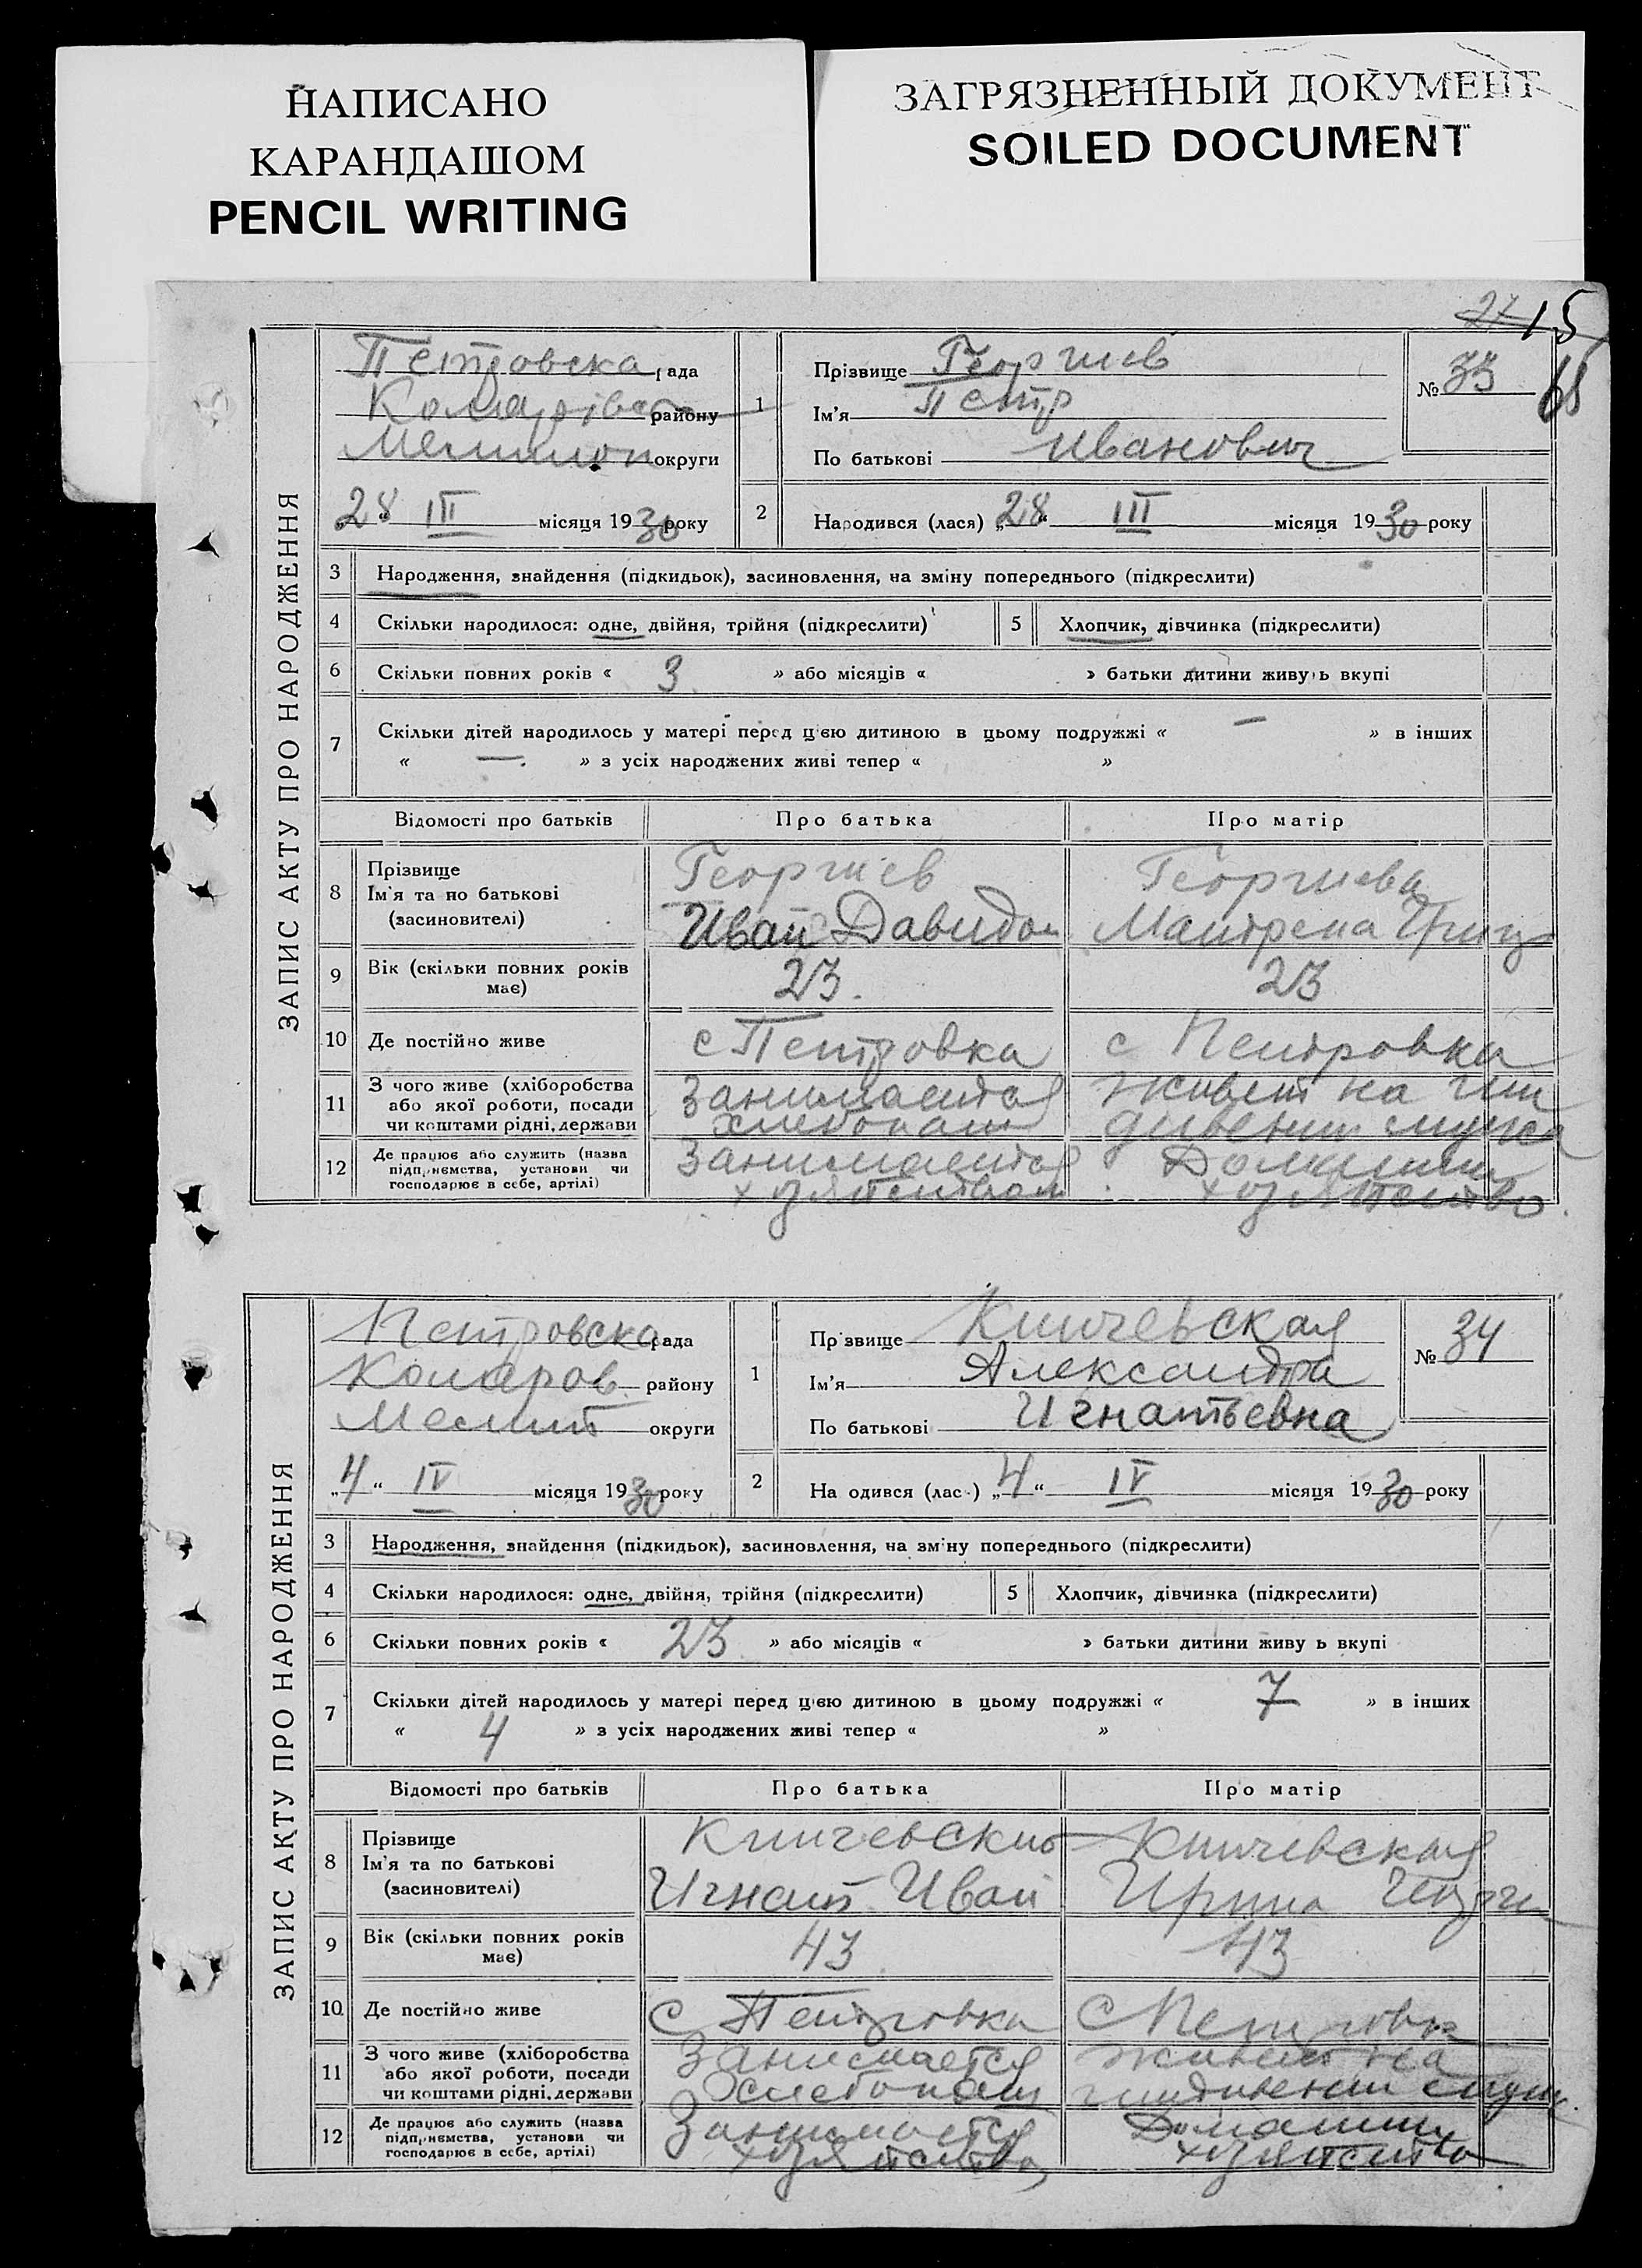 НАПИСАНО
КАРАНДАШОМ
PENCIL WRITING
ЗАГРЯЗНЕННЫЙ ДОКУМЕНТ
SOILED DOCUMENT
27 15
68
ЗАПИС АКТУ ПРО НАРОДЖЕННЯ
Петровска рада
району
Мелитоп округи
„28“ III місяця 1930 року
1
Прізвище Георгиев
Ім'я Петр
По батькові Иванович
№ 33
2
Народився (лася) „28“ III місяця 1930 року
3 Народження, знайдення (підкидьок), засиновлення, на зміну попереднього (підкреслити)
4 Скільки народилося: одне, двійня, трійня (підкреслити)
5 Хлопчик, дівчинка (підкреслити)
6 Скільки повних років « 3 » або місяців « » батьки дитини живуть вкупі
7 Скільки дітей народилось у матері перед цією дитиною в цьому подружжі « — » в інших
« — » з усіх народжених живі тепер « »
Відомості про батьків Про батька Про матір
8 Прізвище
Ім'я та по батькові
(засиновителі)
Георгиев
Иван Давидов
Георгиева
Матрена Григ
9 Вік (скільки повних років
має)
23. 23
10 Де постійно живе с Петровка с Петровка
11 З чого живе (хліборобства
або якої роботи, посади
чи коштами рідні, держави
Занимается
хлебопаш
живет на иж
дивении мужа
12 Де працює або служить (назва
підприємства, установи чи
господарює в себе, артілі)
Занимается
хозяйством
Домашнее
хозяйство
ЗАПИС АКТУ ПРО НАРОДЖЕННЯ
Петровска рада
Комаров району
Мелит округи
„4“ IV місяця 1930 року
1
Прізвище
Ім'я Александра
По батькові Игнатьевна
№ 34
2
На одився (лас ) „4“ IV місяця 1930 року
3 Народження, знайдення (підкидьок), засиновлення, на зміну попереднього (підкреслити)
4 Скільки народилося: одне, двійня, трійня (підкреслити)
5 Хлопчик, дівчинка (підкреслити)
6 Скільки повних років « 23 » або місяців « » батьки дитини живу ь вкупі
7 Скільки дітей народилось у матері перед цією дитиною в цьому подружжі « 7 » в інших
« 4 » з усіх народжених живі тепер « »
Відомості про батьків Про батька Про матір
8 Прізвище
Ім'я та по батькові
(засиновителі)
Игнат Иван
Ирина Георги
9 Вік (скільки повних років
має)
43 43
10 Де постійно живе с Петровка с Петровка
11 З чого живе (хліборобства
або якої роботи, посади
чи коштами рідні, держави
Занимается
хлебопаш
живет на
иждивении муж.
12 Де працює або служить (назва
підприємства, установи чи
господарює в себе, артілі)
Занимается
хозяйство
Домашнее
хозяйство